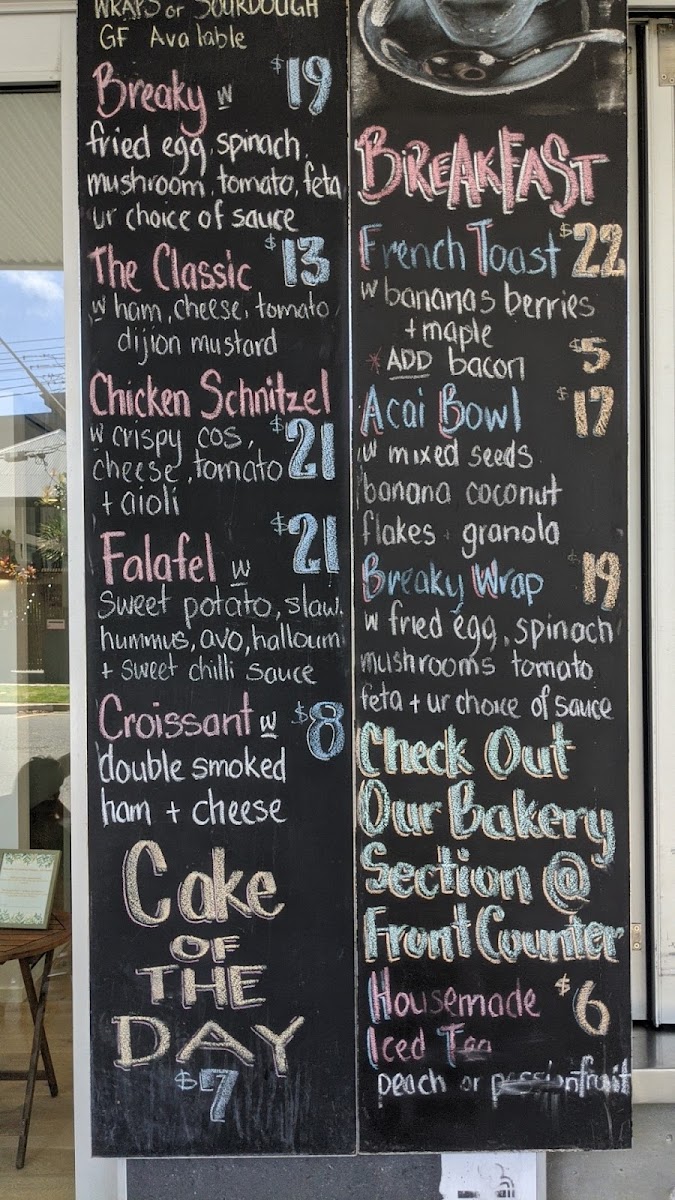 WRAPS or SOURDOUGH
GF Available
Breaky w $19
fried egg, spinach,
mushroom, tomato, feta
ur choice of sauce
The Classic $13
w ham, cheese, tomato
dijion mustard
Chicken Schnitzel
w crispy cos, $21
cheese, tomato
+ aioli
Falafel w $21
sweet potato, slaw,
hummus, avo, halloumi
+ sweet chilli sauce
Croissant w $8
double smoked
ham + cheese
Cake
OF
THE
DAY
$7
BREAKFAST
French Toast $22
w bananas berries
+ maple
*ADD bacon $5
Acai Bowl $17
w mixed seeds
banana coconut
flakes + granola
Breaky Wrap $19
w fried egg, spinach
mushrooms tomato
feta + ur choice of sauce
Check Out
Our Bakery
Section @
Front Counter
Housemade $6
Iced Tea
peach or passionfruit